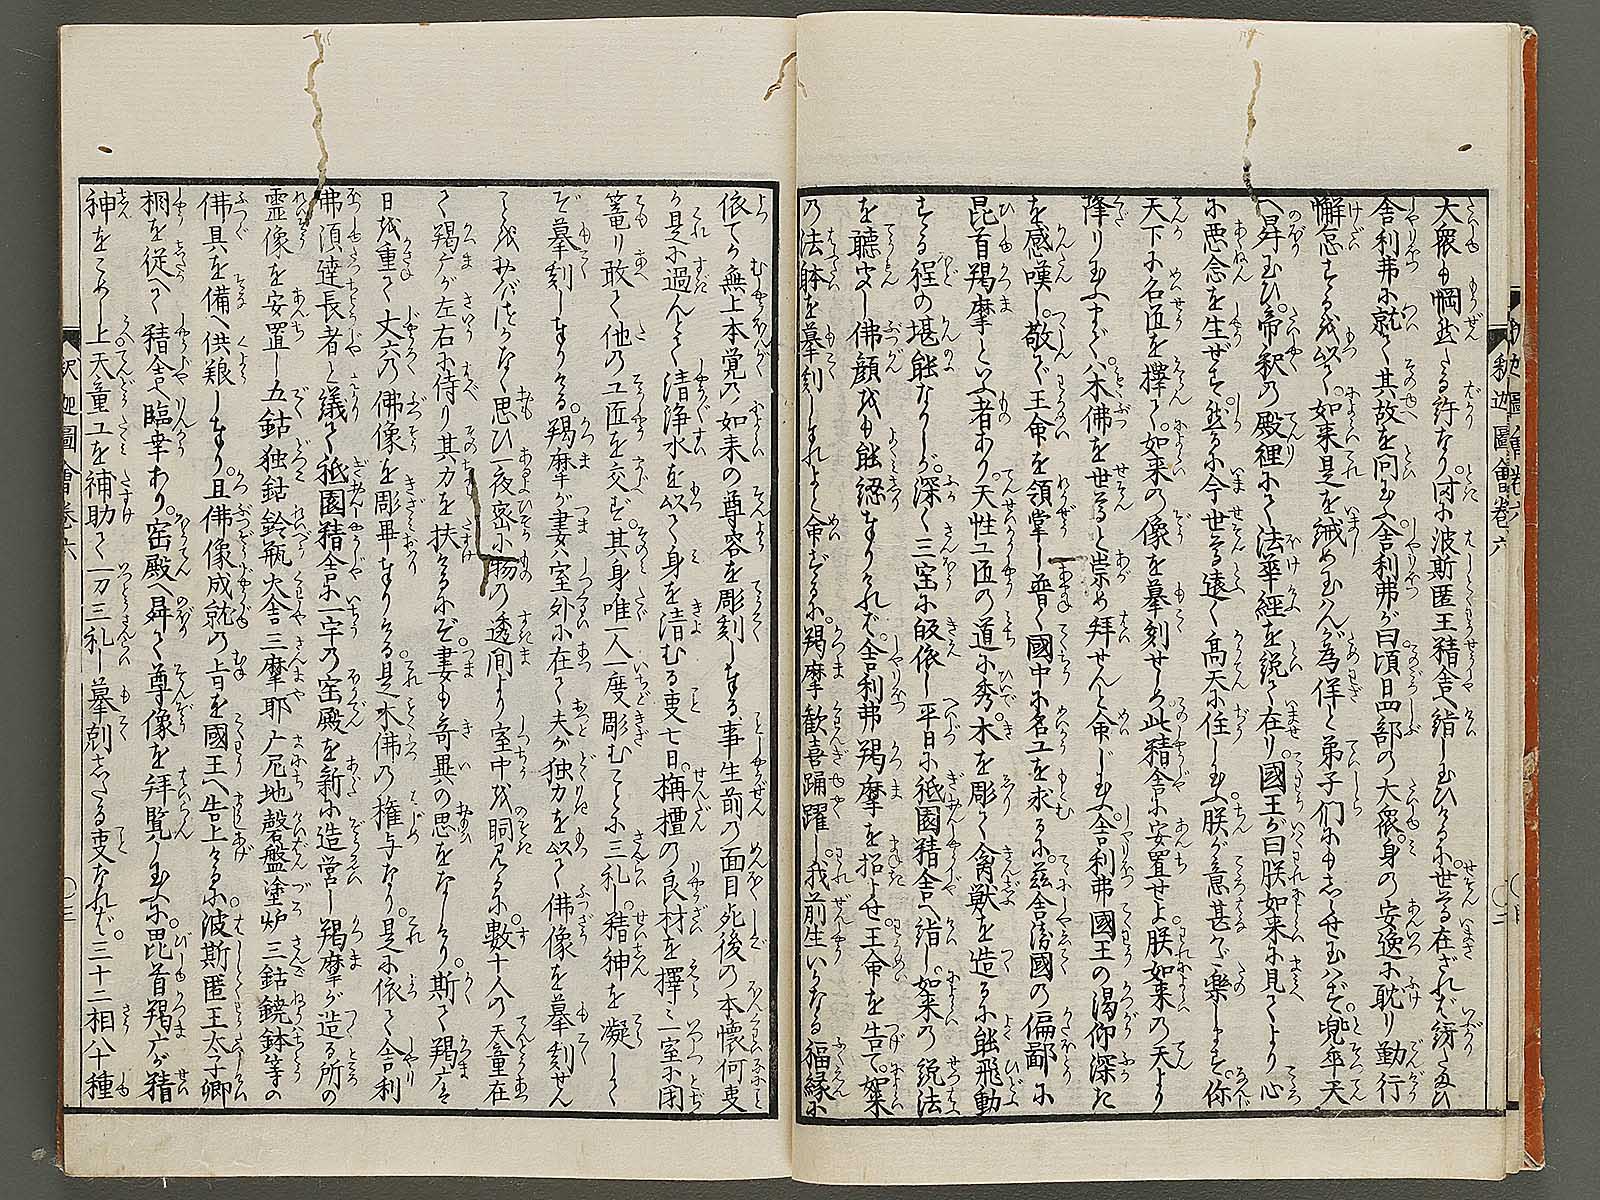 大衆も惘然たる許なり時に波斯匿王精舎へ詣し玉ひけるに世尊在ざれば訝り玉ひ
舎利弗に就て其故を問玉ふ舎利弗が曰頃日四部の大衆身の安逸に耽り勤行
懈怠するを以て如来是を緘め玉はんが為佯と弟子们にもしらせ玉はず兜率天
へ昇玉ひ帝釈の殿裡にて法華経を説て在り國王が曰朕如来に見てより心
に悪念を生ぜず然るに今世尊遠く高天に住し玉ふ朕が意甚だ楽します你
天下に名匠を擇て如来の像を摹刻せしめ此精舎に安置せよ朕如来の天より
降り玉ふまでハ木佛を世尊と崇め拜せんと命じ玉ふ舎利弗國王の渇仰深き
を感嘆し敬で王命を領掌し普く國中に名工を求るに茲舎衛國の偏鄙に
毘首羯摩といふ者あり天性工匠の道に秀木を彫て禽獣を造るに能飛動
する程の堪能なりしが深く三宝に皈依し平日に祇園精舎へ詣し如来の説法
を聽聞し佛顔をも能認奉りければ舎利弗羯摩を招よせ王命を告て如来
の法躰を摹刻しまいれよと命ずるに羯摩歓喜踊躍し我前生いかなる福縁に
釈迦圖會卷六
依てか無上本覚の如来の尊容を彫刻し奉る事生前の面目死後の本懐何叓
か是に過んとて清浄水を以て身を清むる叓七日栴檀の良材を擇ミ一室に閉
篭り敢て他の工匠を交ず其身唯一人一度彫むごとに三礼し精神を凝して
ぞ摹刻し奉りける羯摩が妻ハ室外に在て夫が独力を以て佛像を摹刻せん
ことをおぼつかなく思ひ一夜密に物の透間より室中を覗見るに數十人の天童在
て羯广が左右に侍り其力を扶けるにぞ妻も奇異の思をなしけり斯て羯广
日を重て丈六の佛像を彫畢奉りける是木佛の権与なり是に依て舎利
弗須達長者と議て祇園精舎に一宇の宝殿を新に造営し羯摩が造る所の
霊像を安置し五鈷独鈷鈴瓶火舎三摩耶广尼地磬盤塗炉三鈷鐃鉢等の
佛具を備へ供粮し奉り且佛像成就の旨を國王へ告上けるに波斯匿王太子卿
相を従へて精舎へ臨幸あり宝殿へ昇て尊像を拜覧し玉ふに毘首羯广が精
神をこめし上天童工を補助て一刀三礼し摹刻したる叓なれば三十二相八十種
釈迦圖會卷六